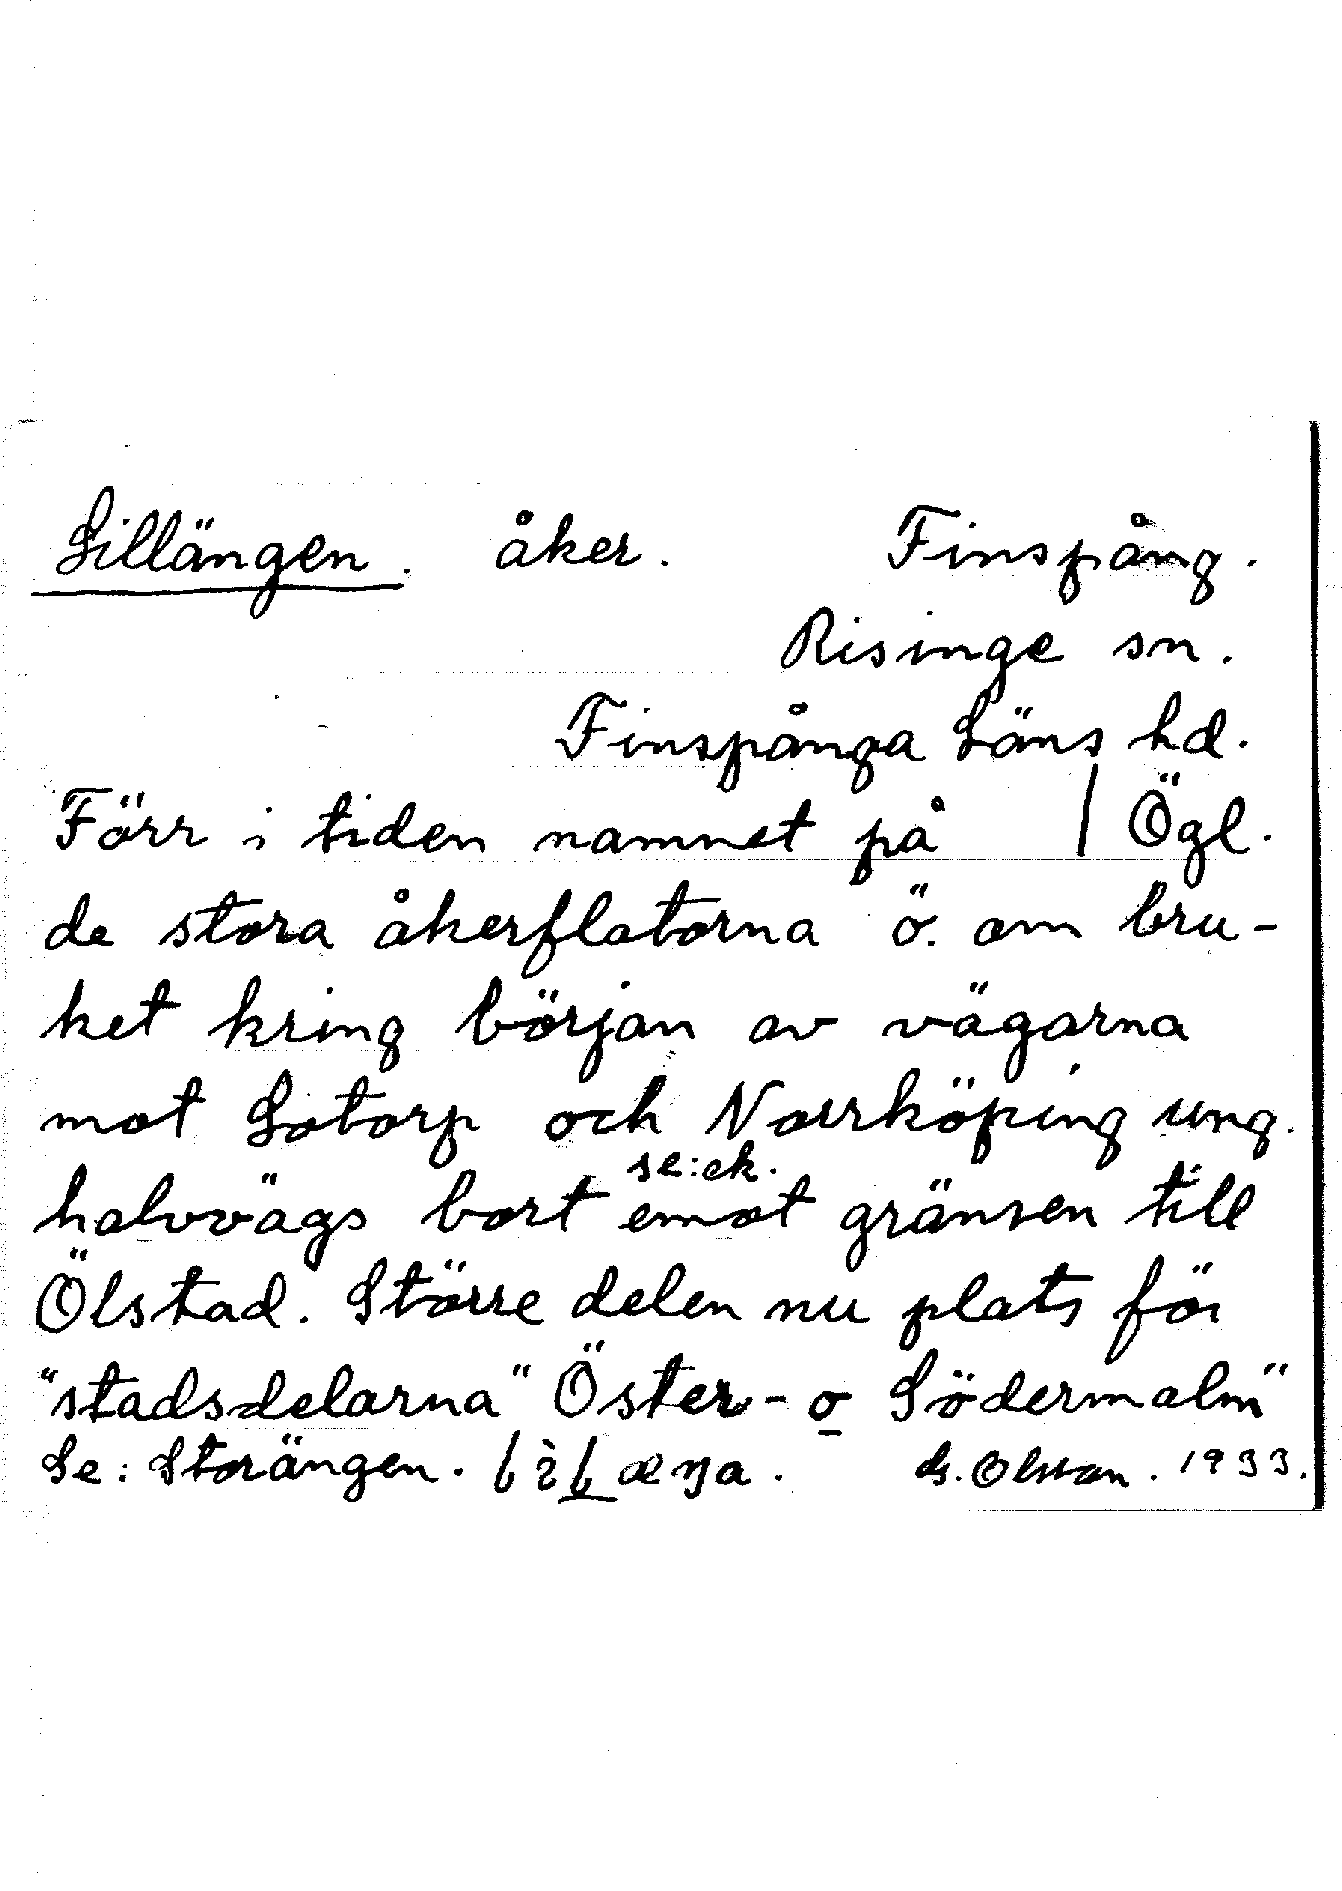 Lillängen. åker. Finspång.
Risinge sn.
Finspånga Läns hd.
Förr i tiden namnet på / Ögl.
de stora åkerflatorna ö. om bru-
ket kring början av vägarna
mot Lotorp och Norrköping ung.
se: ek.
halvvägs bort emot gränsen till
Ölstad. Större delen nu plats för
"stadsdelarna" Öster- o Södermalm"
Se: Storängen. G. Olsson. 1933.